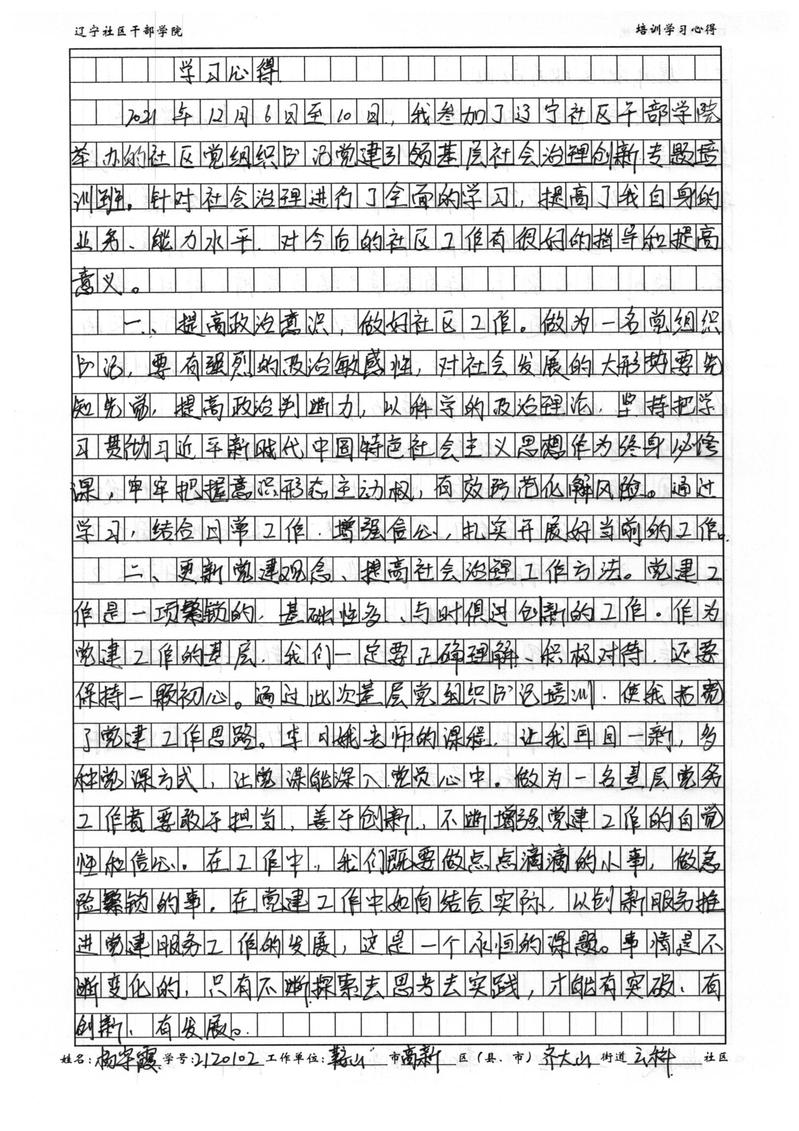 辽宁社区干部学院 培训学习心得
学习心得
2021年12月6日至10日,我参加了辽宁社区干部学院
举办的社区党组织书记党建引领基层社会治理创新专题培
训班。针对社会治理进行了全面的学习,提高了我自身的
业务、能力水平.对今后的社区工作有很好的指导和提高
意义。
一、提高政治意识,做好社区工作。做为一名党组织
书记,要有强烈的政治敏感性,对社会发展的大形势要先
知先觉,提高政治判断力,以科学的政治理论,坚持把学
习贯彻习近平新时代中国特色社会主义思想作为终身必修
课,牢牢把握意识形态主动权,有效防范化解风险。通过
学习,结合日常工作.增强信心,扎实开展好当前的工作。
二、更新党建观念、提高社会治理工作方法。党建工
作是一项繁锁的,基础性多、与时俱进创新的工作.作为
党建工作的基层,我们一定要正确理解、积极对待,还要
保持一颗初心。通过此次基层党组织书记培训.使我拓宽
了党建工作思路。 老师的课程,让我耳目一新,多
种党课方式,让党课能深入党员心中。做为一名基层党务
工作者要敢于担当、善于创新,不断增强党建工作的自觉
性和信心。在工作中,我们既要做点点滴滴的小事,做急
险繁锁的事,在党建工作中如何结合实际,以创新服务推
进党建服务工作的发展,这是一个永恒的课题。事情是不
断变化的,只有不断探索去思考去实践,才能有突破、有
创新、有发展。
姓名:杨宇霞 学号:2120102 工作单位:鞍山 市 高新 区(县、市) 齐大山 街道 云科 社区